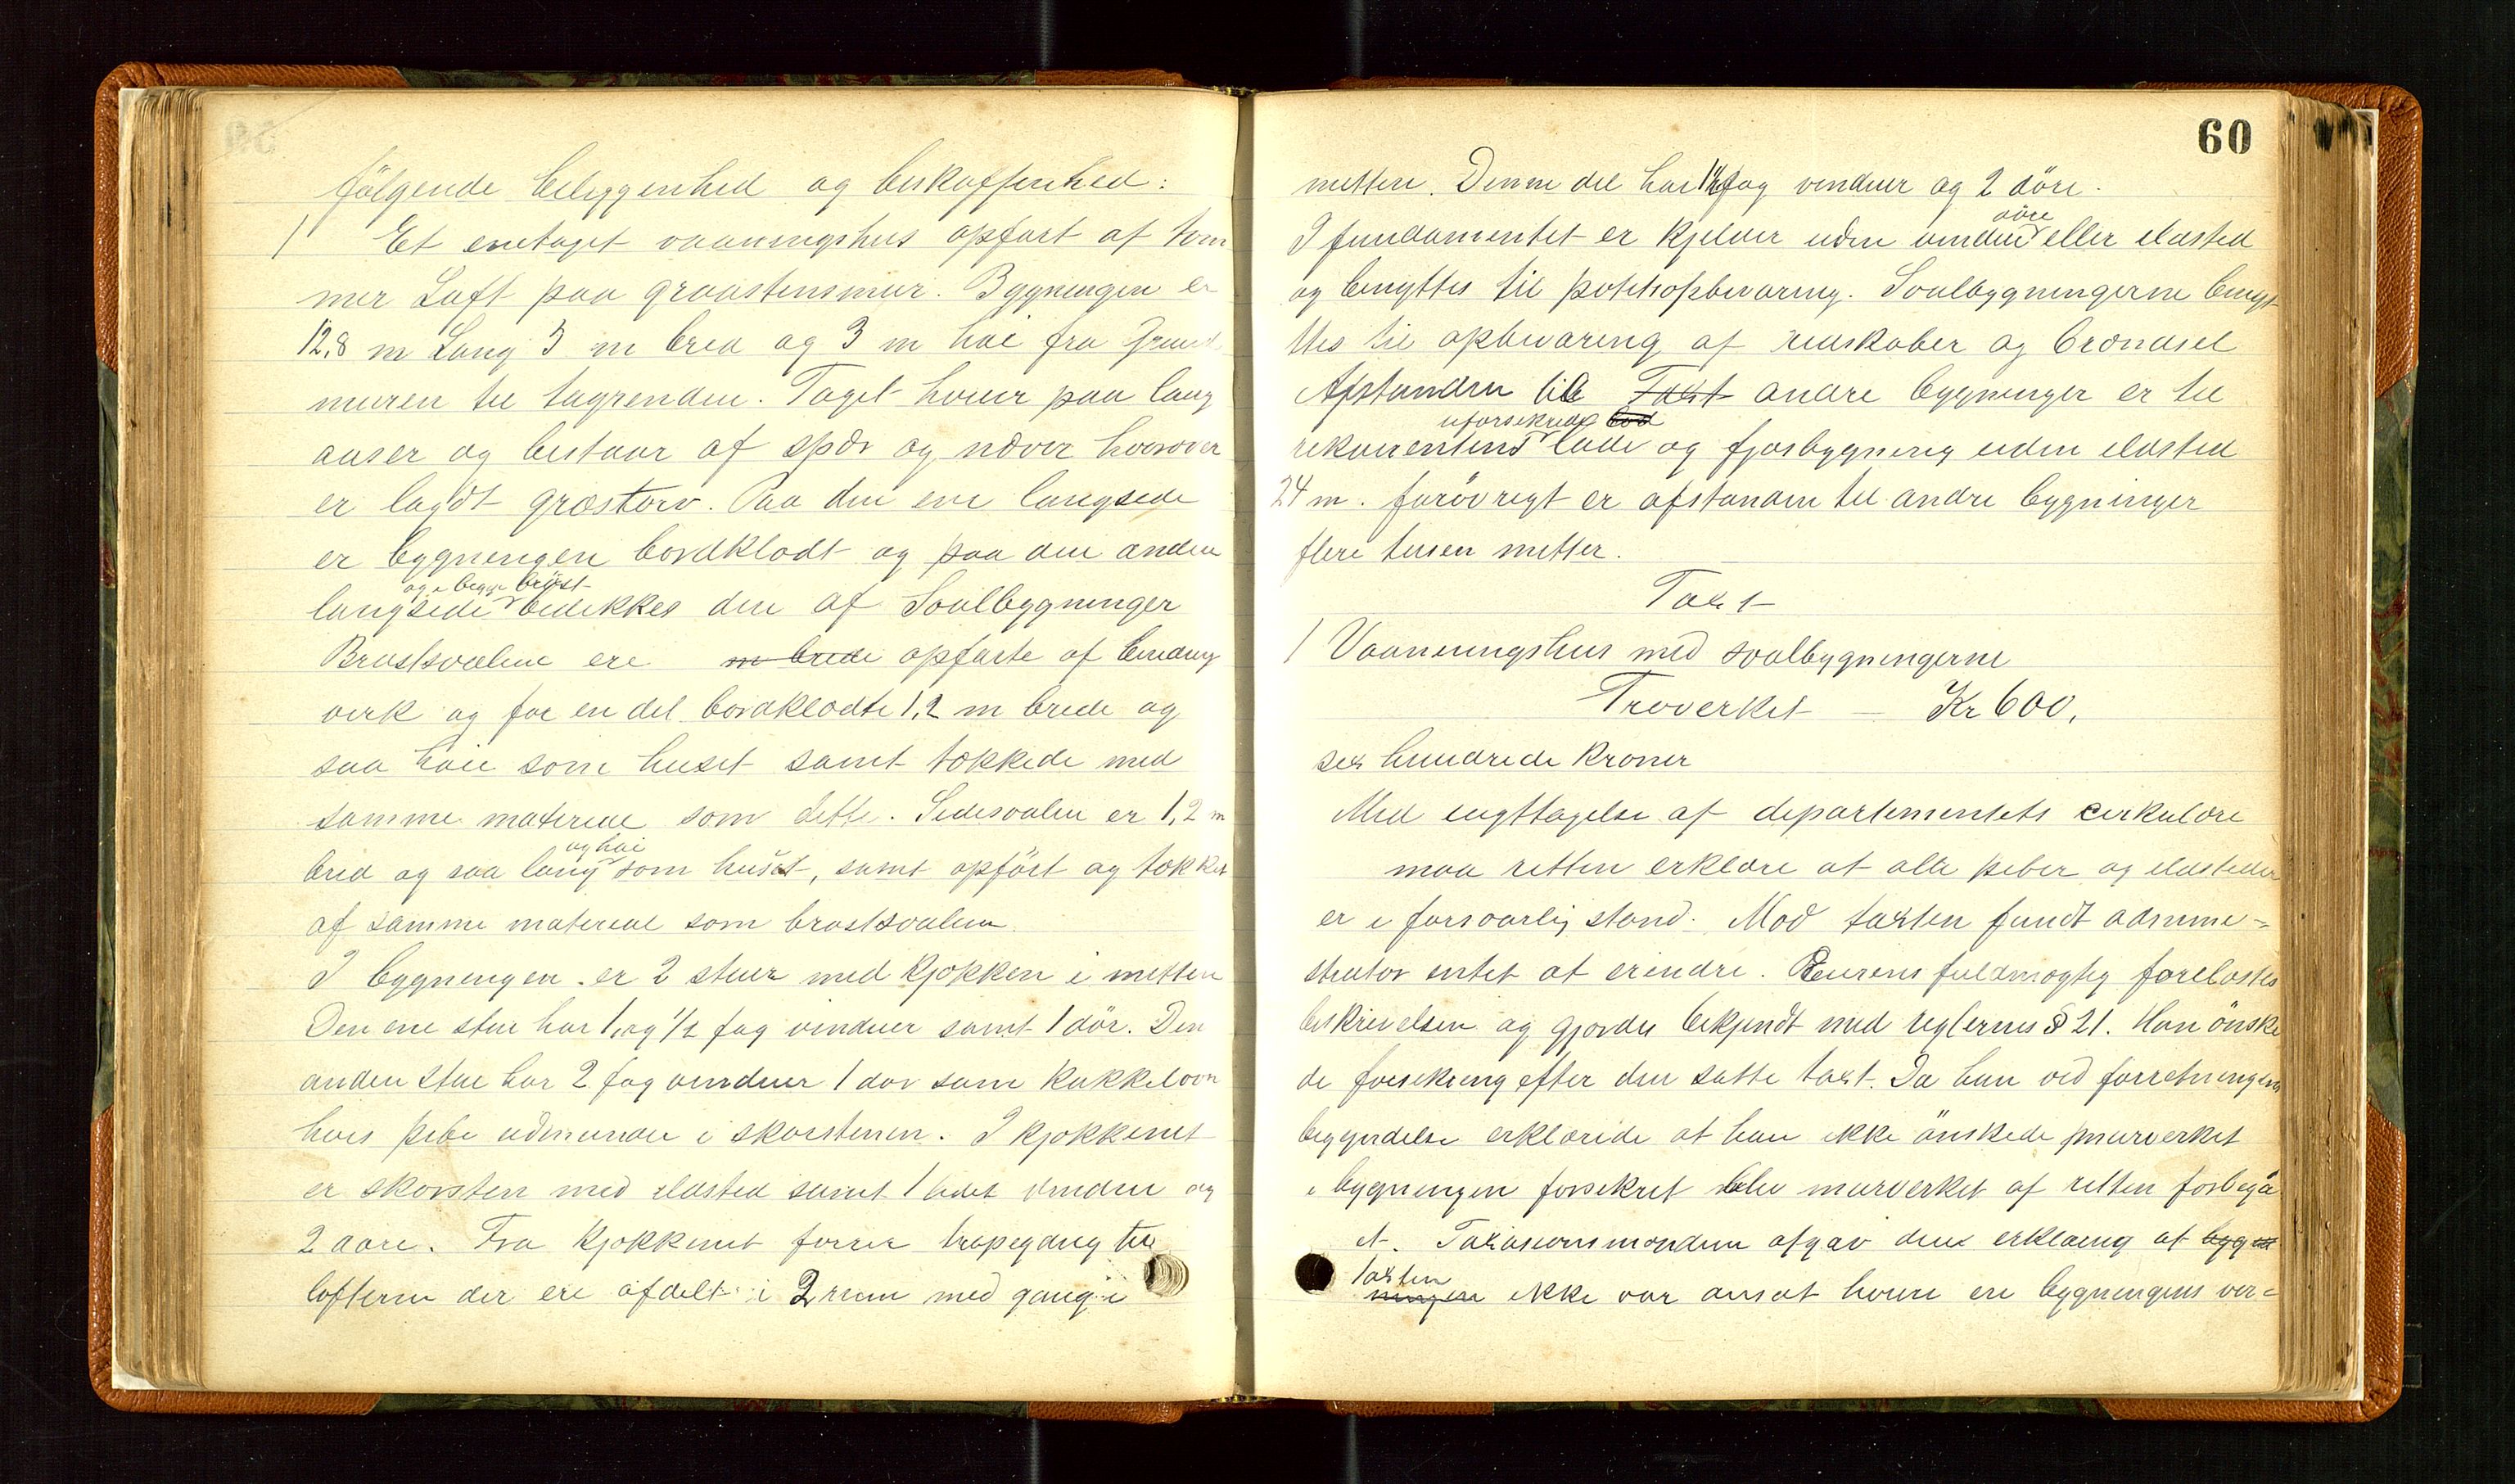 følgende beliggenhed og beskaffenhed:
1 Et enetaget vaaningshus opført af töm
mer Laft paa graastensmur. Bygningen er
12,8 m Lang 5 m bred og 3 m høi fra Grund
muren til tagrenden. Taget hviler paa lang
aaser og bestaar af spær og næver hvorover
er lagdt græstorv. Paa den ene langsede
er bygningen bordklædt og paa den anden
og i begge bryst
langsede bedekkes den af Svalbygninger
Brøstsvalene ere m brede opførte af binding
verk og for en del bordklædte 1,2 m brede og
saa høie som huset samt tækkede med
samme materiale som dette. Sidesvalen er 1,2 m
og høi
bred og saa lang som huset, samt opført og tækket
af samme materiale som brøstsvalene.
I bygningen er 2 stuer med kjøkken i mitten
Den ene stue har 1 og 1/2 fag vinduer samt 1 dör. Den
anden stue har 2 fag vinduer 1 dør samt kakkelovn
hvis pibe udmunder i skorstenen. I kjøkkenet
er skorsten med ildsted samt 1 lidet vindue og
2 døre. Fra kjøkkenet fører trapegang til
lofterne der ere afdelt i 2 rum med gang i
60
mitten. Denne del har 1 1/2 fag vinduer og 2 döre.
döre
I fundamentet er kjelder uden vinduer eller ildsted
og benyttes til potetopbevaring. Svalbygningerne beny
ttes til opbevaring af redskaber og brændsel
Afstanden til Taxt andre bygninger er til
uforsekrede lod
rekvirentens lade og fjøsbygning uden ildsted
24 m. forøvrigt er afstanden til andre bygninger
flere tusen metter.
Taxt
1 Vaaningshus med svalbygningerne
Træverket — Kr 600,
sex hundrede kroner
Med iagttagelse af departementets cirkulære
maa retten erklære at alle piber og ildsteder
er i forsvarlig stand. Mod taxten fandt admine-
strator intet at erindre. Eierens fuldmægtig forelæstes
beskrivelsen og gjordes bekjendt med reglernes § 21. Han önske
de forsikring efter den satte taxt. Da han ved forretningens
begyndelse erklærede at han ikke önskede murverket
i bygningen forsikret blev murverket af retten forbigaa
et. Taxasionsmændene afgav den erklæring at bygn
taxten
ningen ikke var ansat høiere en bygningens ver-